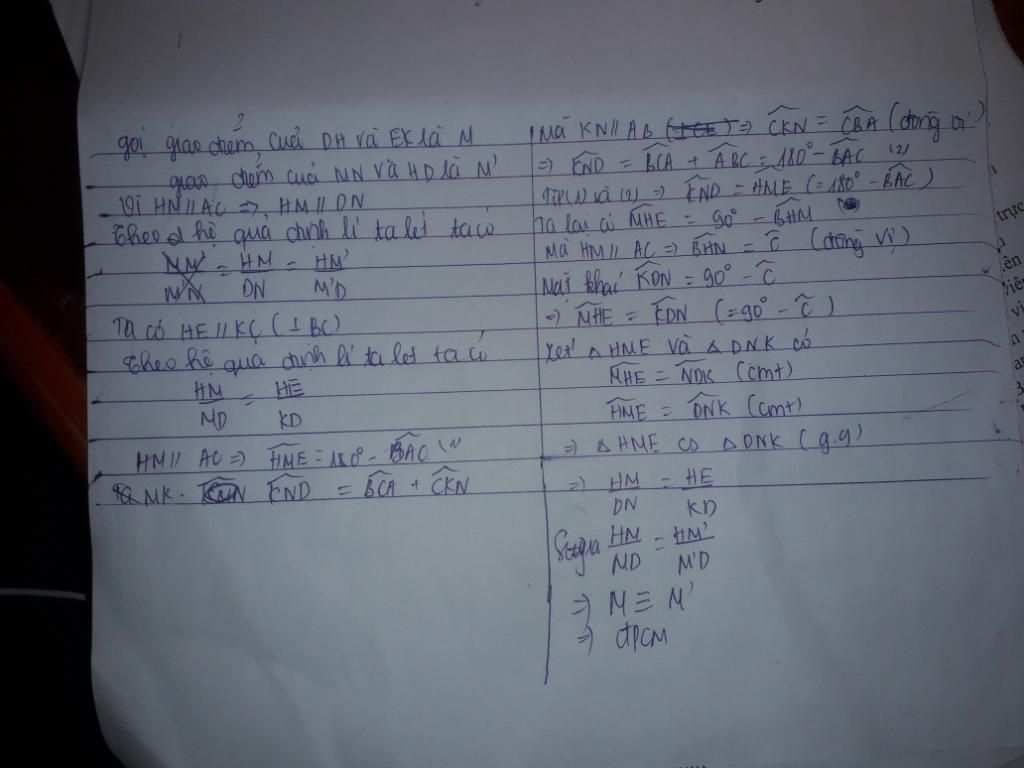 gọi giao điểm của DH và EK là M
giao điểm của MN và HD là M'
Vì HM // AC => HM // DN
Theo hệ quả định lí ta lét ta có
HM/DN = HM'/M'D
Ta có HE // KC (⊥ BC)
Theo hệ quả định lí ta let ta có
HM/MD = HE/KD
HM // AC => HME = 180° - BAC (1)
MK. KND = BCA + CKN
Mà KN // AB => CKN = CBA (đồng vị)
=> KND = BCA + ABC = 180° - BAC (2)
Từ (1) và (2) => KND = HME (= 180° - BAC)
Ta lại có MHE = 90° - BHM
Mà HM // AC => BHM = C (đồng vị)
Mặt khác KDN = 90° - C
=> MHE = KDN (= 90° - C)
Xét △ HME và △ DNK có
MHE = NDK (cmt)
HME = DNK (cmt)
=> △ HME ∽ △ DNK (g.g)
=> HM/DN = HE/KD
HM/MD = HM'/M'D
=> M ≡ M'
=> đPCM